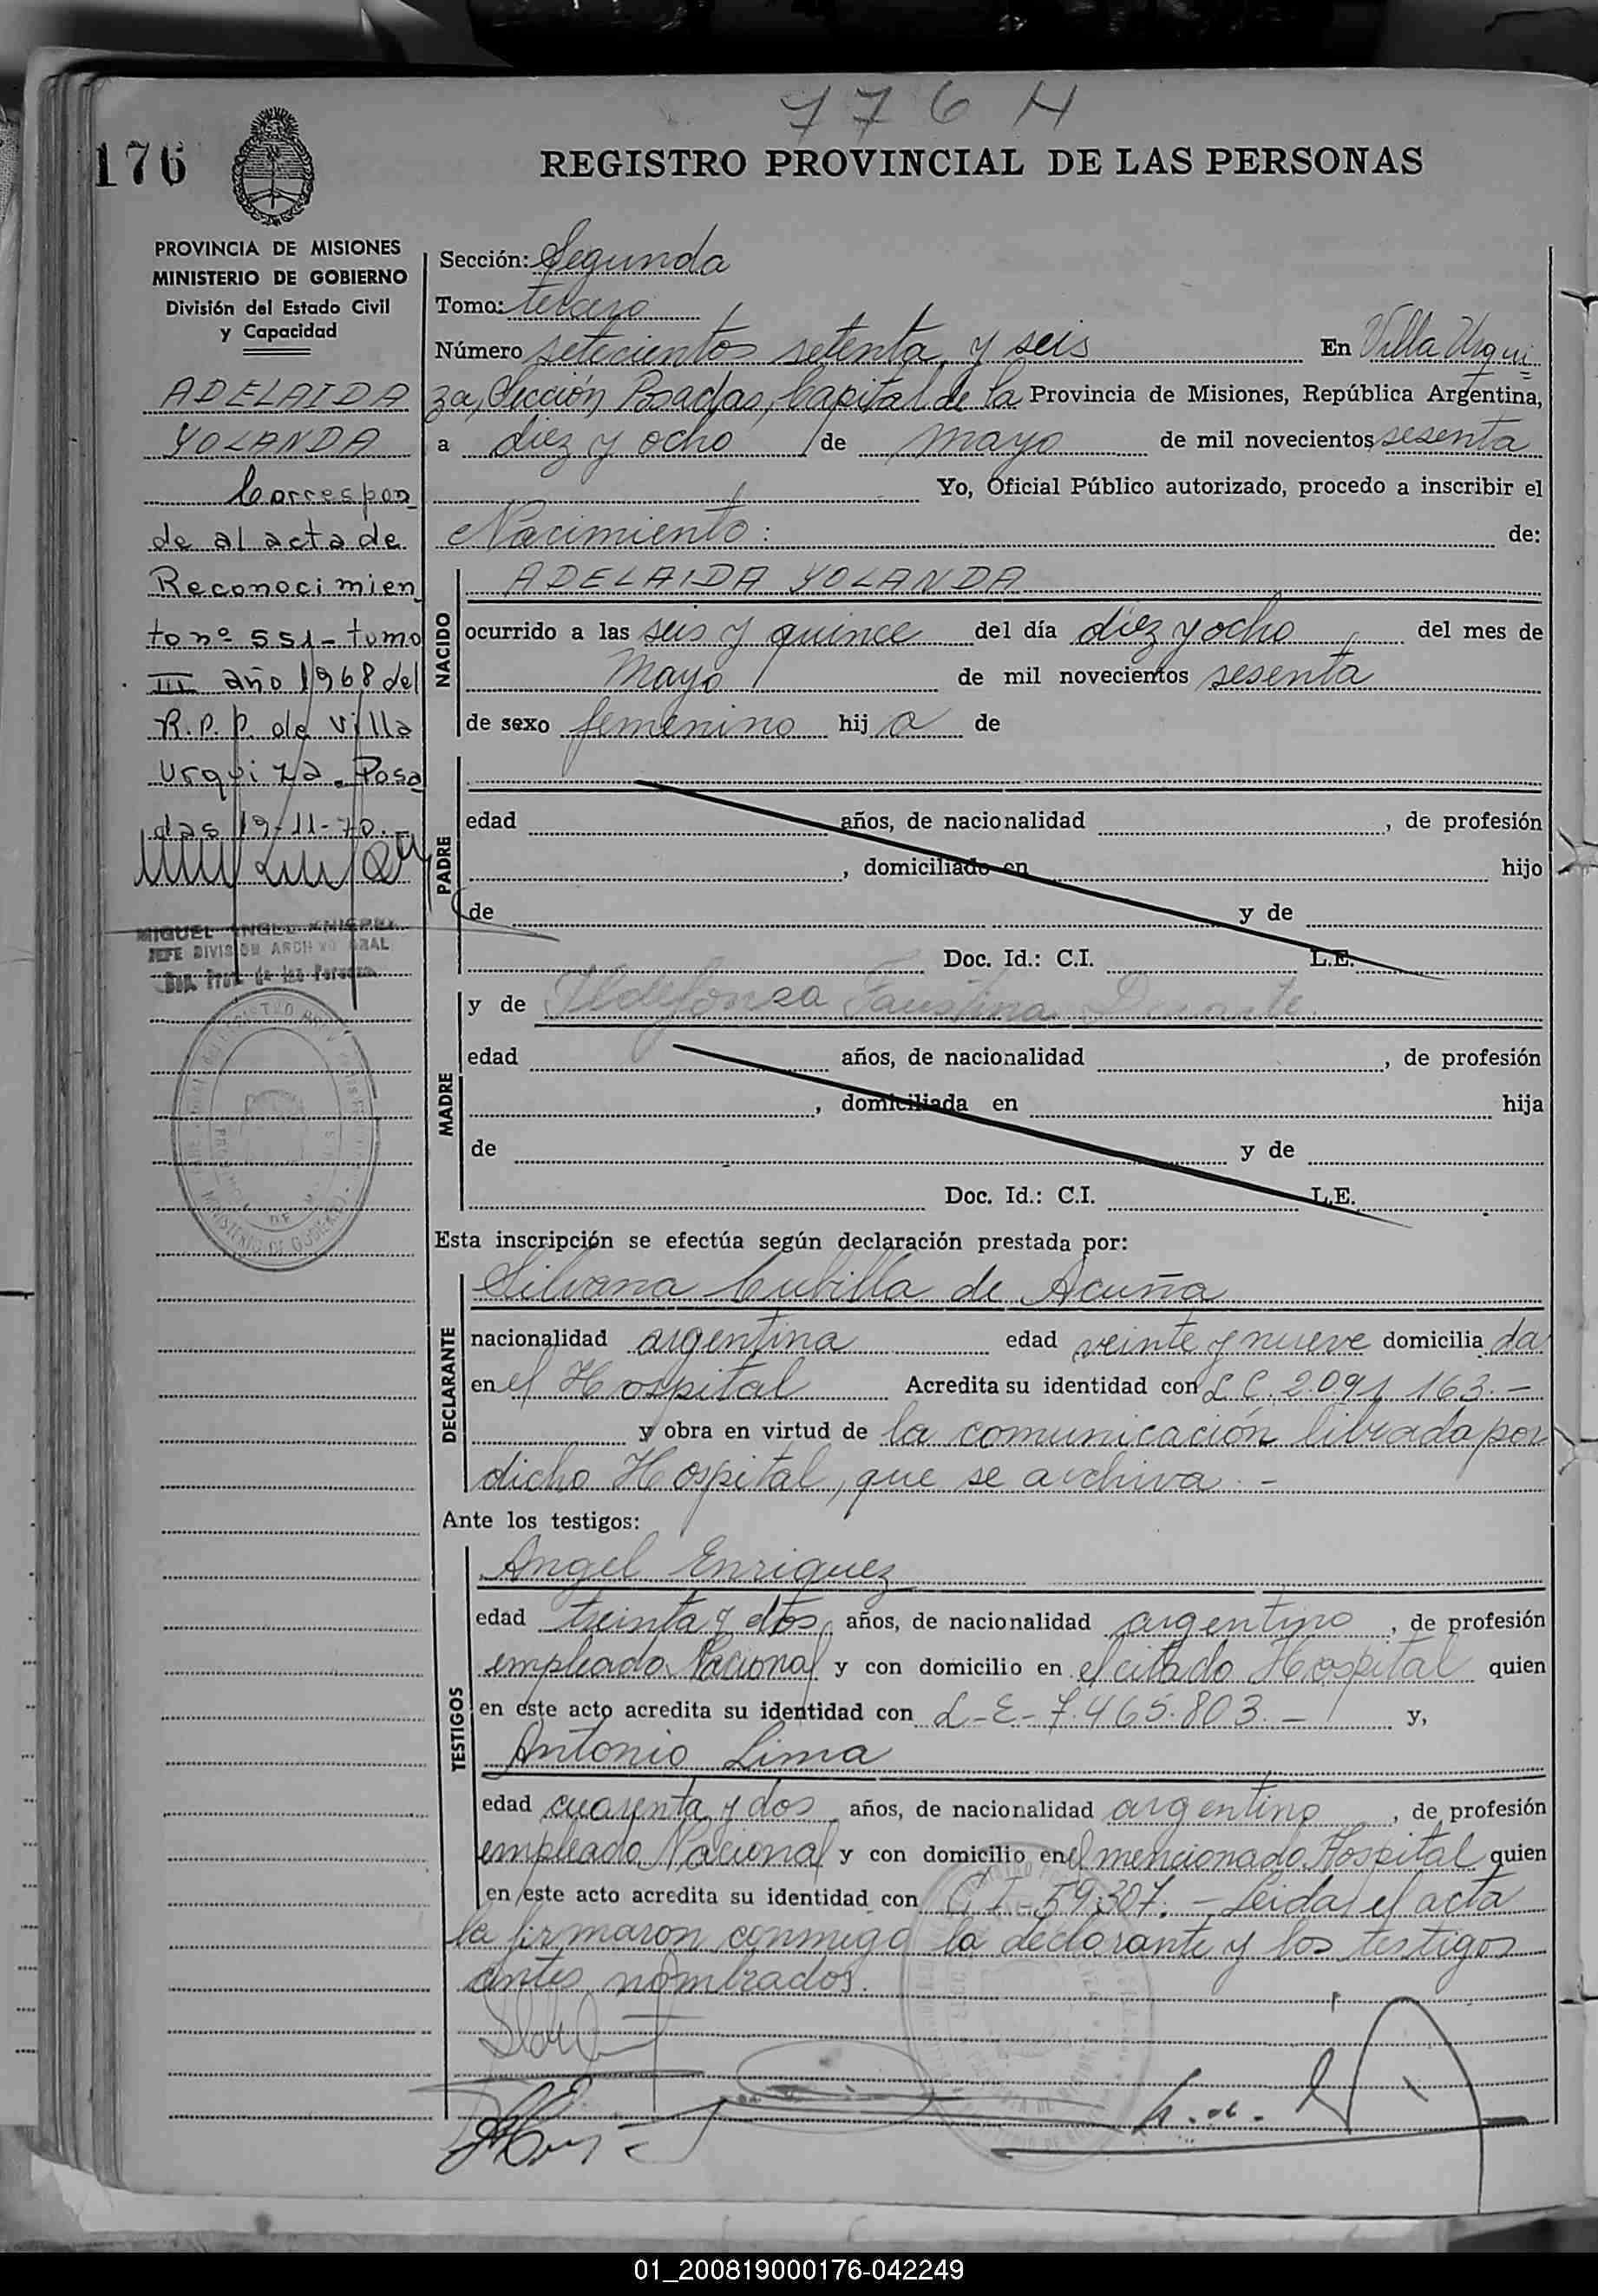 776 H
176
REGISTRO PROVINCIAL DE LAS PERSONAS
PROVINCIA DE MISIONES
MINISTERIO DE GOBIERNO
División del Estado Civil
y Capacidad
ADELAIDA
YOLANDA
Correspon
de al acta de
Reconocimien
to nº 551 - tomo
III año 1968 del
R.P.P. de Villa
Urquiza. Posa
das 19-11-70.
MIGUEL ANGEL
JEFE DIVISION ARCHIVO GRAL
Sección: Segunda
Tomo: tercero
Número setecientos setenta y seis En Villa Urqui
za, Sección Posadas, Capital de la Provincia de Misiones, República Argentina,
a diez y ocho de mayo de mil novecientos sesenta
Yo, Oficial Público autorizado, procedo a inscribir el
Nacimiento: de:
NACIDO
ADELAIDA YOLANDA
ocurrido a las seis y quince del día diez y ocho del mes de
Mayo de mil novecientos sesenta
de sexo femenino hija de
PADRE
edad años, de nacionalidad , de profesión
, domiciliado en hijo
de y de
Doc. Id.: C.I. L.E.
MADRE
y de Ildefonsa Faustina Duarte.
edad años, de nacionalidad , de profesión
, domiciliada en hija
de y de
Doc. Id.: C.I. L.E.
Esta inscripción se efectúa según declaración prestada por:
DECLARANTE
Silvana Cubilla de Acuña
nacionalidad argentina edad veinte y nueve domiciliada
en el Hospital Acredita su identidad con L.C. 2.091.163.-
y obra en virtud de la comunicación librada por
dicho Hospital, que se archiva.-
Ante los testigos:
TESTIGOS
Angel Enriquez
edad treinta y dos, años, de nacionalidad argentino, de profesión
empleado Nacional y con domicilio en el citado Hospital quien
en este acto acredita su identidad con L-E-7.465.803.- y,
Antonio Lima
edad cuarenta y dos años, de nacionalidad argentino, de profesión
empleado Nacional y con domicilio en el mencionado Hospital quien
en este acto acredita su identidad con C.I. 59.307.- Leida el acta
la firmaron conmigo la declarante y los testigos
antes nombrados.
01_200819000176-042249